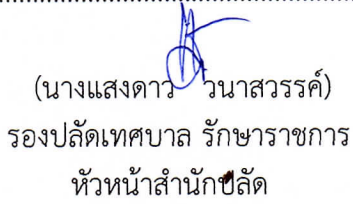 (นางแสงดาว วนาสวรรค์)
รองปลัดเทศบาล รักษาราชการ
หัวหน้าสำนักปลัด